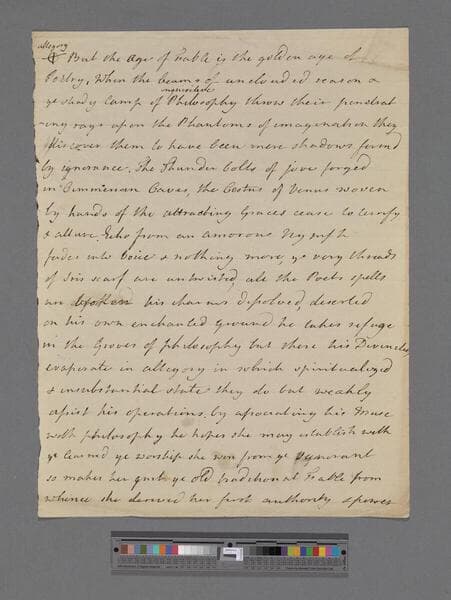 allegory
But the age of Fable is the golden age of
Poetry, when the beams of unclouded reason &
inquisitive
ye shady Lamp of Philosophy throw their penetrat
-ing rays upon the Phantoms of imagination they
discover them to have been mere shadows formd
by ignorance. The Thunder bolts of jove forged
in Cimmerian Caves, the Cestus of Venus woven
by hands of the attracting Graces cease to terrify
& allure. Echo from an amorous Nymph
fades into Voice & nothing more, ye very threads
of Iris scarf are untwisted all the Poets spells
are broken his charms disolved, deserted
on his own enchanted ground he takes refuge
in the Groves of philosophy but there his Divinities
evaporate in allegory in which spiritualized
& insubstantial state they do but weakly
assist his operations. by associating his Muse
with philosophy he hopes she may establish with
ye learned ye worship she won from ye ignorant
so makes her quit ye old traditional Fable from
whence she derived her first authority & power